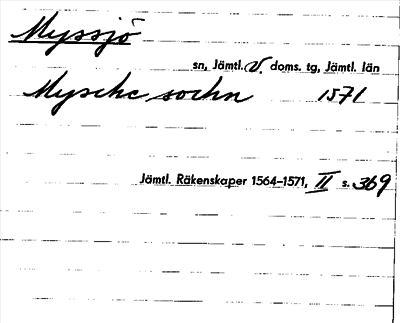 Myssjö
sn, Jämtl. V. doms. tg, Jämtl. län
Myschc sochn 1571
Jämtl. Räkenskaper 1564–1571, II s. 369